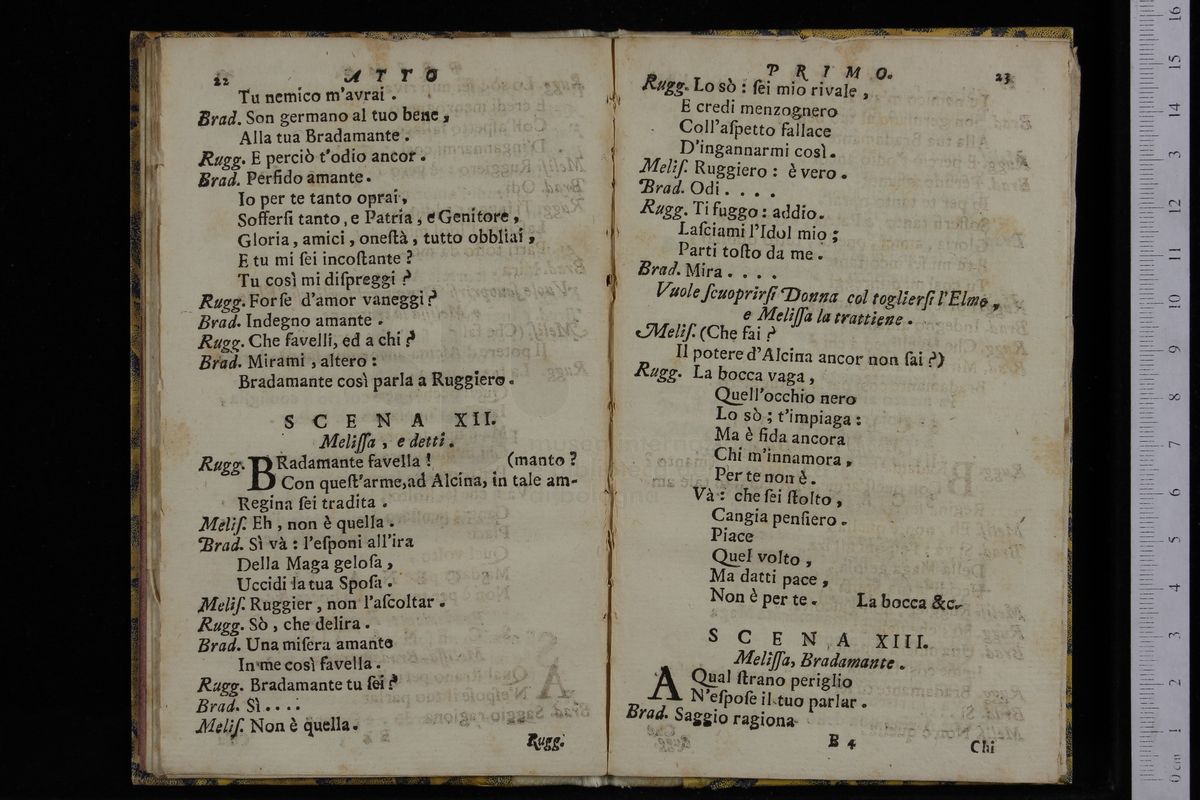 22 ATTO
Tu nemico m'avrai .
Brad. Son germano al tuo bene ,
Alla tua Bradamante .
Rugg. E perciò t'odio ancor .
Brad. Perfido amante .
Io per te tanto oprai ,
Sofferſi tanto , e Patria , e Genitore ,
Gloria , amici , oneſtà , tutto obbliai ,
E tu mi ſei incoſtante ?
Tu così mi diſpreggi ?
Rugg. Forſe d'amor vaneggi ?
Brad. Indegno amante .
Rugg. Che favelli, ed a chi ?
Brad. Mirami , altero :
Bradamante così parla a Ruggiero .
SCENA XII.
Meliſſa , e detti .
Rugg. BRadamante favella ! (manto ?
Con queſt'arme, ad Alcina, in tale am-
Regina ſei tradita .
Meliſ. Eh , non è quella .
Brad. Sì và : l'eſponi all'ira
Della Maga geloſa ,
Uccidi la tua Spoſa .
Meliſ. Ruggier , non l'aſcoltar .
Rugg. Sò , che delira .
Brad. Una miſera amante
In me così favella .
Rugg. Bradamante tu ſei ?
Brad. Sì . . . .
Meliſ. Non è quella .
Rugg.
PRIMO. 23
Rugg. Lo sò : ſei mio rivale ,
E credi menzognero
Coll'aſpetto fallace
D'ingannarmi così .
Meliſ. Ruggiero : è vero .
Brad. Odi . . . .
Rugg. Ti fuggo : addio .
Laſciami l'Idol mio ;
Parti toſto da me .
Brad. Mira . . . .
Vuole ſcuoprirſi Donna col toglierſi l'Elmo ,
e Meliſſa la trattiene .
Meliſ. (Che fai ?
Il potere d'Alcina ancor non ſai ?)
Rugg. La bocca vaga ,
Quell'occhio nero
Lo sò ; t'impiaga :
Ma è fida ancora
Chi m'innamora ,
Per te non è .
Và : che ſei ſtolto ,
Cangia penſiero .
Piace
Quel volto ,
Ma datti pace ,
Non è per te . La bocca &c.
SCENA XIII.
Meliſſa, Bradamante .
A Qual ſtrano periglio
N'eſpoſe il tuo parlar .
Brad. Saggio ragiona
B 4 Chi